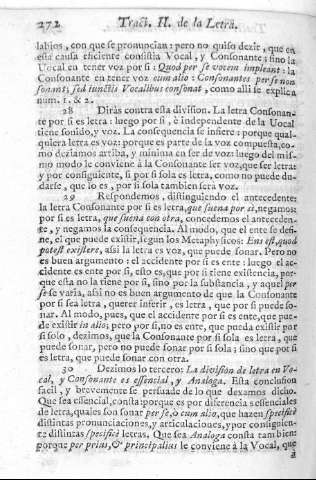 272 Tract. II. de la Letra.
labios, con que se pronuncian: pero no quiso dezir, que en
esta causa eficiente consistia Vocal, y Consonante; sino la
Uocal en tener voz por si: Quod per se vocem impleant: la
Consonante en tener voz cum alio: Consonantes per se non
sonant; sed iunctis Vocalibus consonat, como alli se explica
num. 1. & 2.
28 Diràs contra esta division. La letra Consonan-
te por si es letra: luego por si, è independente de la Uocal
tiene sonido, y voz. La consequencia se infiere: porque qual-
quiera letra es voz: porque es parte de la voz compuesta, co-
mo deziamos arriba, y minima en ser de voz: luego del mis-
mo modo le conviene à la Consonante ser voz, que ser letra:
y por consiguiente, si por si sola es letra, como no puede du-
darse, que lo es, por si sola tambien serà voz.
29 Respondemos, distinguiendo el antecedente:
la letra Consonante por si es letra, que suena por si, negamos:
por si es letra, que suena con otra, concedemos el anteceden-
te, y negamos la consequencia. Al modo, que el ente se defi-
ne, el que puede existir, segun los Metaphysicos: Ens est, quod
potest existere, assi la letra es voz, que puede sonar. Pero no
es buen argumento: el accidente por si es ente: luego el ac-
cidente es ente por si, esto es, que por si tiene existencia, por-
que esta no la tiene por si, sino por la substancia, y aquel per
se se varia, assi no es buen argumento de que la Consonante
por si sea letra, querer inferir, es letra, que por si puede so-
nar. Al modo, pues, que el accidente por si es ente, que pue-
de existir in alio; pero por si, no es ente, que pueda existir por
si solo, dezimos, que la Consonante por si sola es letra, que
puede sonar, pero no puede sonar por si sola; sino que por si
es letra, que puede sonar con otra.
30 Dezimos lo tercero: La division de letra en Vo-
cal, y Consonante es essencial, y Analoga. Esta conclusion
facil, y brevemente se persuade de lo que dexamos dicho.
Que sea essencial, consta: porque es por diferencias essenciales
de letra, quales son sonar per se, ò cum alio, que hazen specificè
distintas pronunciaciones, y articulaciones, y por consiguien-
te distintas specificè letras. Que sea Analoga consta tambien:
porque per prius, & principalius le conviene à la Vocal, que
a